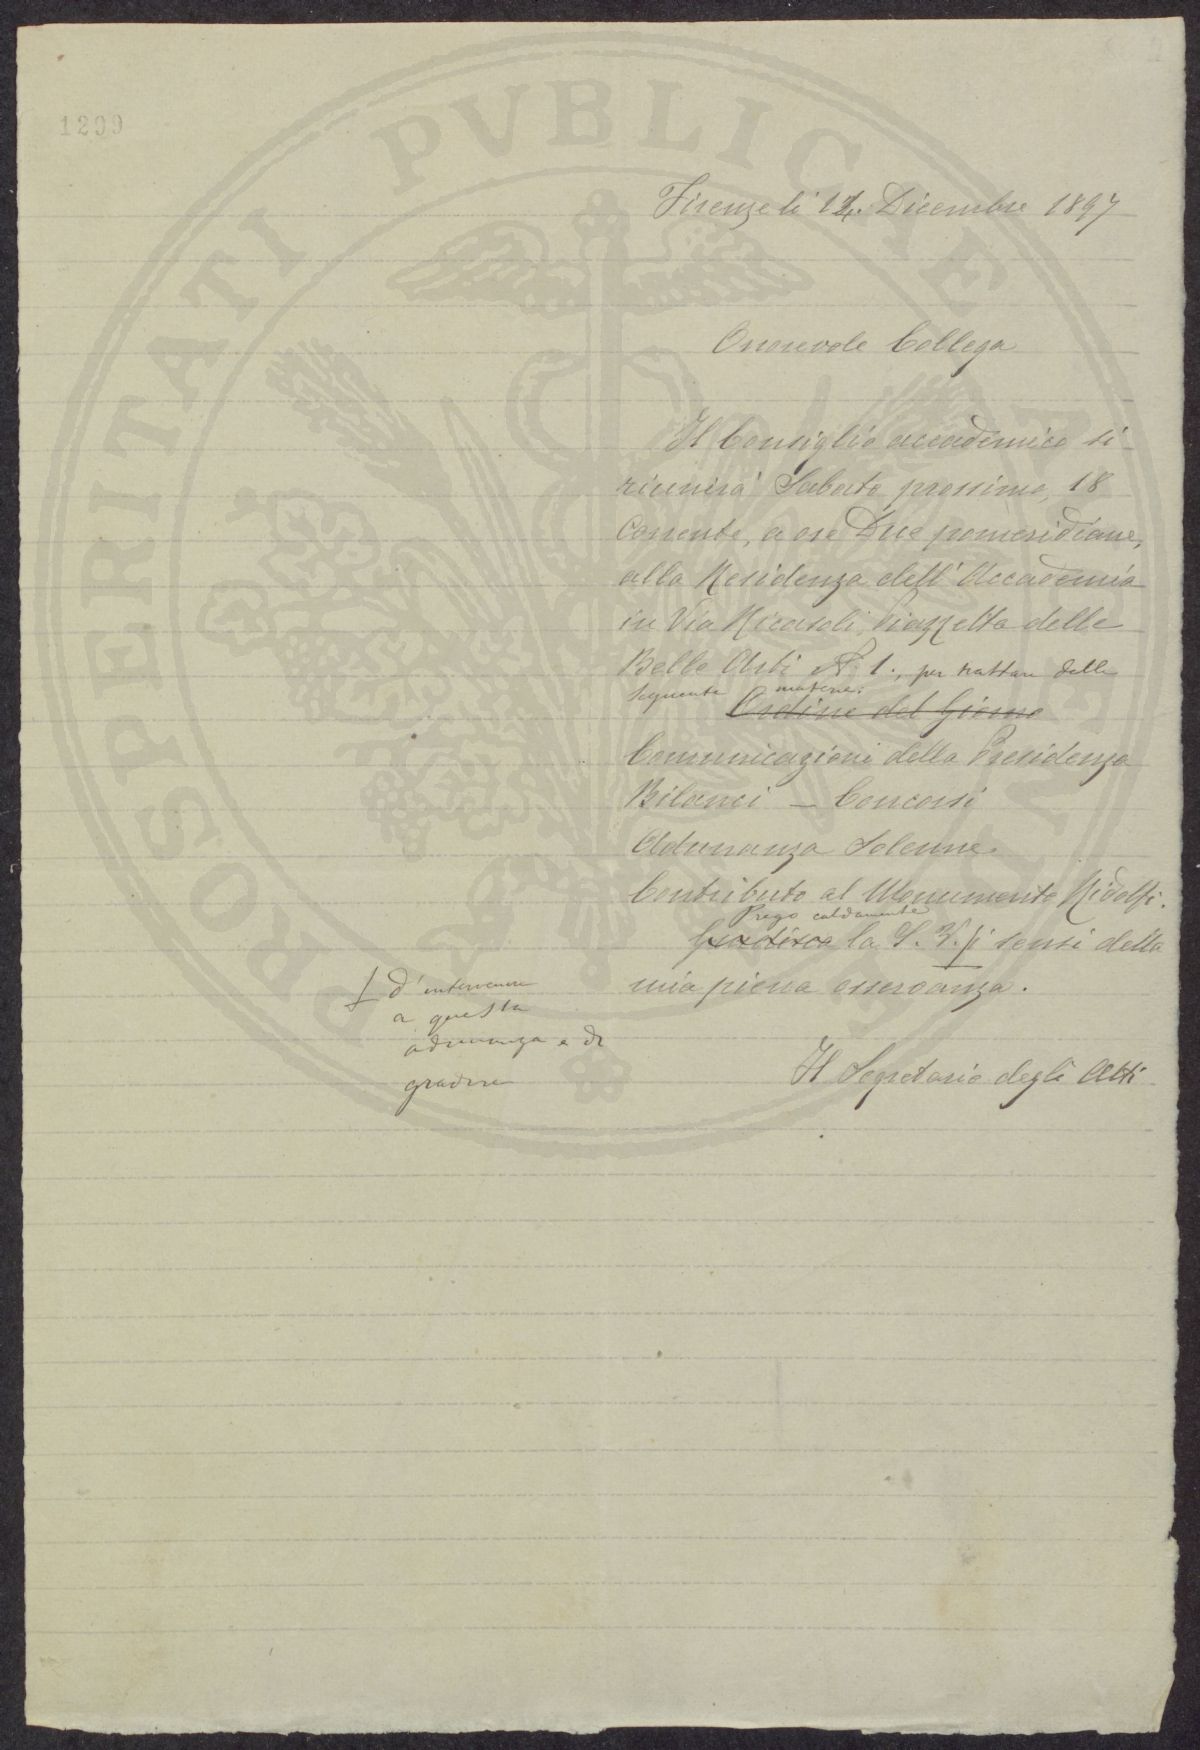 PROSPERITATI PVBLICAE AVGENDAE
1299
Firenze li 14. Dicembre 1897
Onorevole Collega
Il Consiglio accademico si
riunirà Sabato prossimo, 18
corrente, a ore Due pomeridiane,
alla Residenza dell'Accademia
in Via Ricasoli, Piazzetta delle
Belle Arti N. 1., per trattare delle
seguente materie:
Ordine del Giorno
Comunicazioni della Presidenza
Bilanci — Concorsi
Adunanza Solenne
Contributo al Monumento Ridolfi.
Prego caldamente
Gradisca la S. V. i sensi della
mia piena osservanza.
d'intervenire
a questa
adunanza e di
gradire
Il Segretario degli Atti